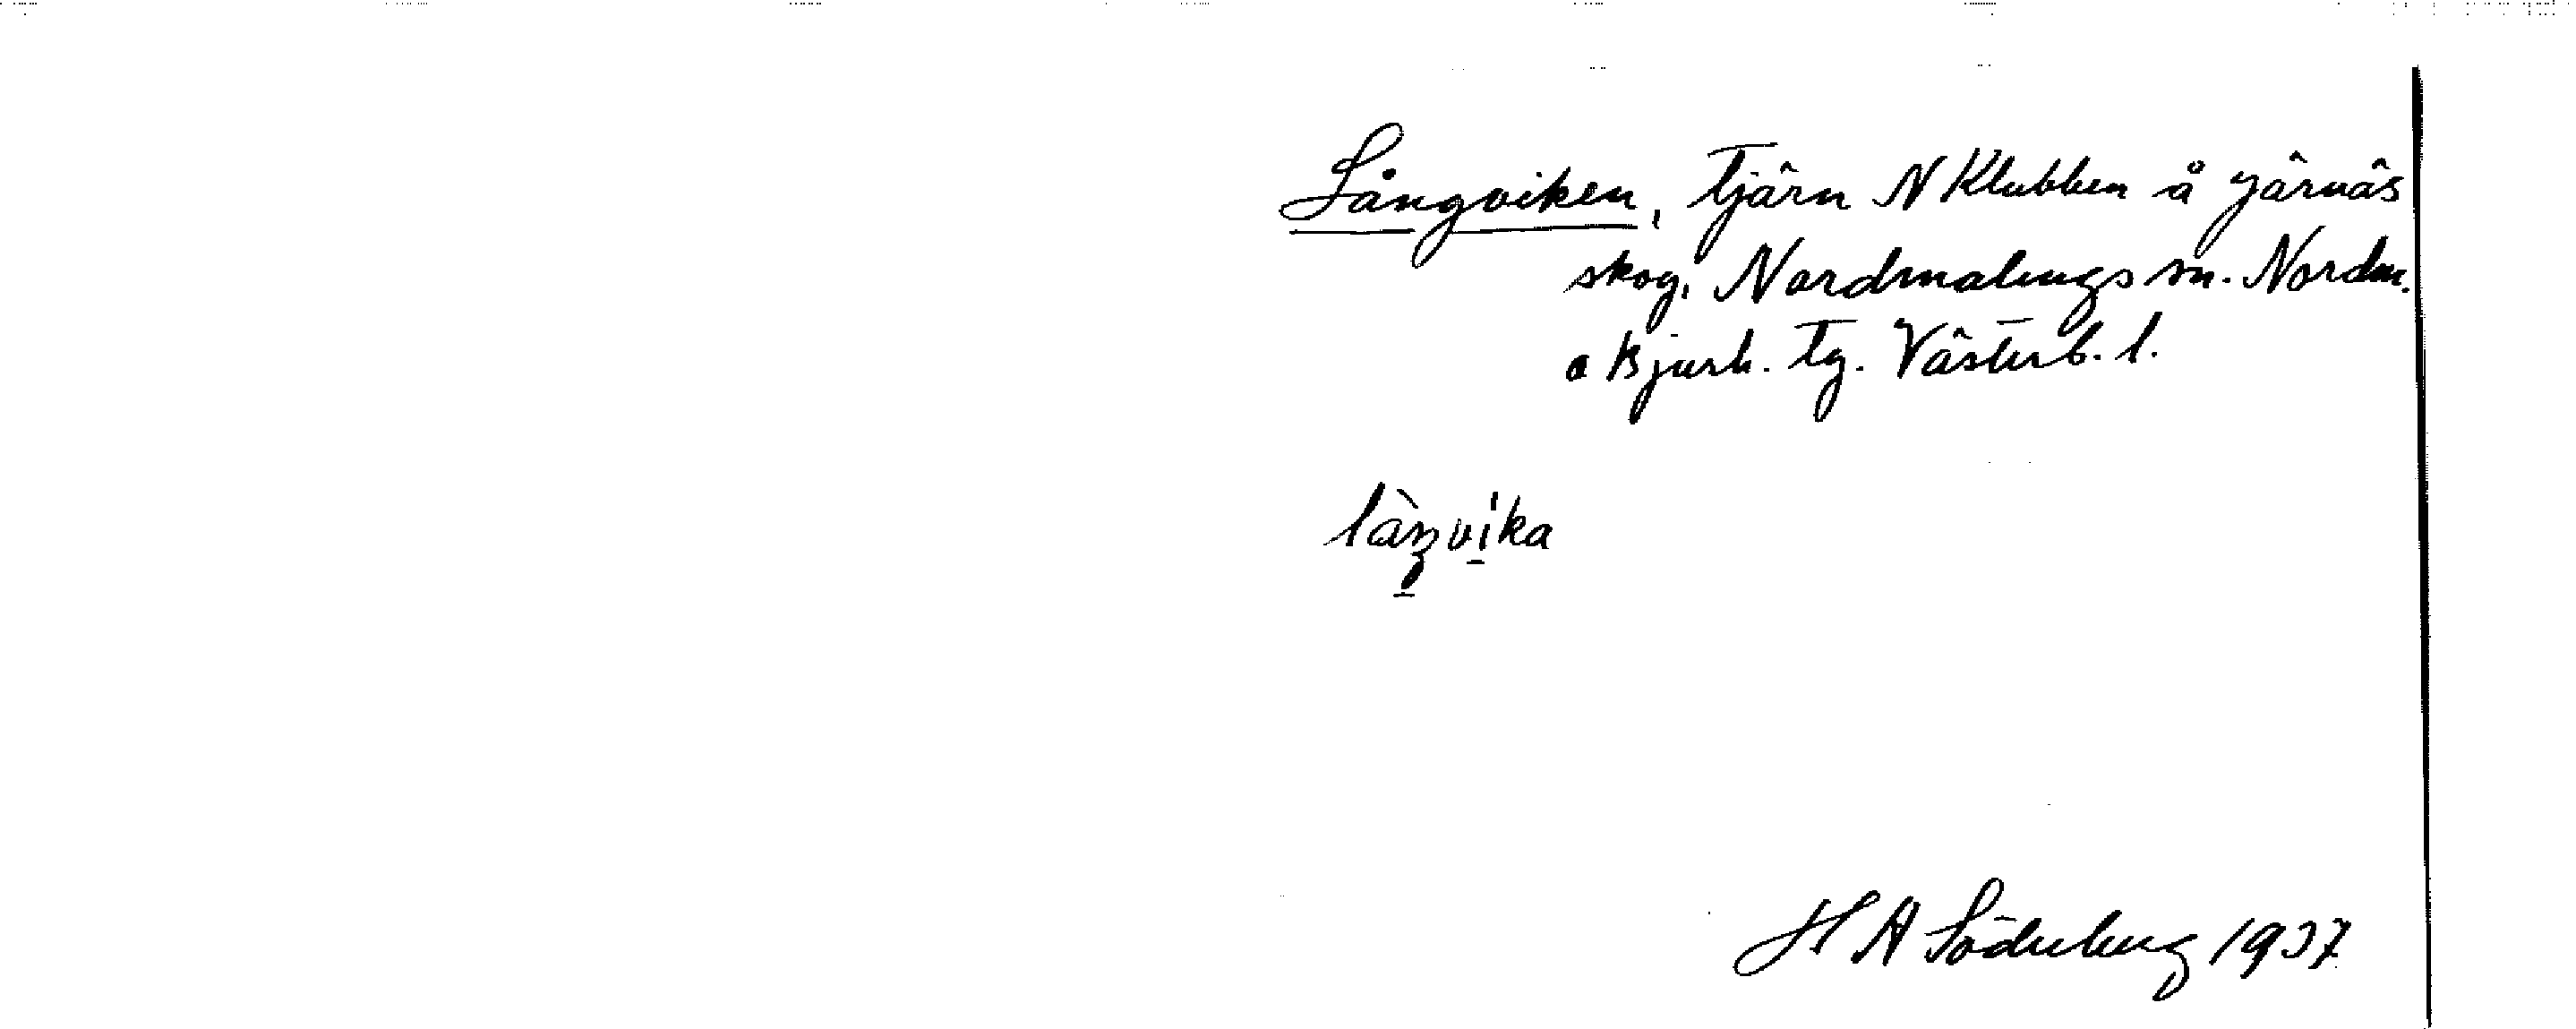 Långviken, tjärn N Klubben å Järnäs
skog, Nordmalings sn. Nordm.
o Bjurh. tg. Västerb. l.
làŋvi̱ka
H A Söderberg 1937